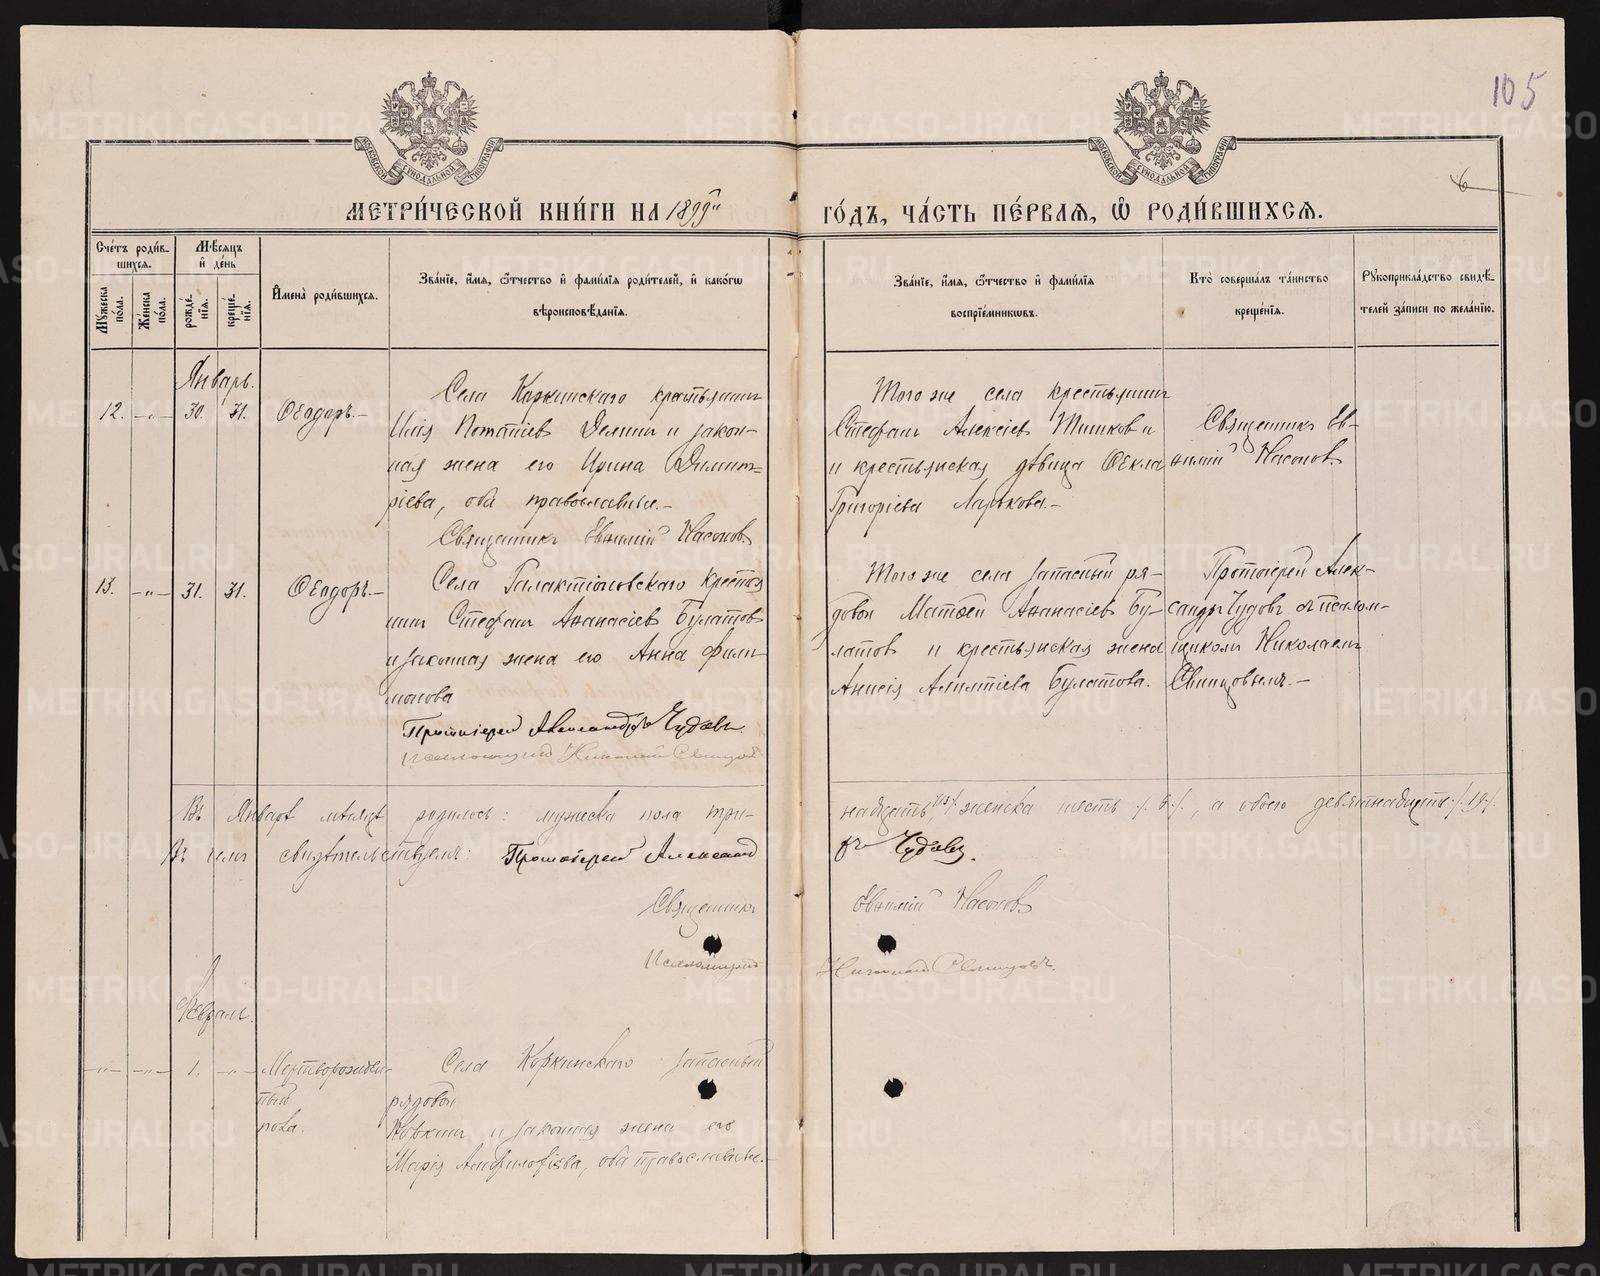 105
6
МОСКОВСКОЙ СѴНОДАЛЬНОЙ ТИПОГРАФІИ
МОСКОВСКОЙ СѴНОДАЛЬНОЙ ТИПОГРАФІИ
МЕТРИ́ЧЕСКОЙ КНИ́ГИ НА 1899й
ГО́ДЪ, ЧА́СТЬ ПЕ́РВАЯ, Ѽ РОДИ́ВШИХСЯ.
Сче́тъ роди́в-
шихся.
Му́жеска по́ла.
Же́нска по́ла.
Мѣ́сяцъ
и҆ де́нь
рожде́-
нія.
креще́-
нія.
И҆мена̀ роди́вшихся.
Зва́ніе, и҆́мя, ѻ҆́тчество и҆ фами́лія роди́телей, и҆ како́гѡ
вѣроисповѣ́данія.
Зва́ніе, и҆́мя, ѻ҆́тчество и҆ фами́лія
воспріе́мникѡвъ.
Кто̀ соверша́лъ та́инство
креще́нія.
Рꙋкоприкла́дство свидѣ́-
телей за́писи по жела́нію.
Январь.
12. -„- 30. 31. Ѳеодоръ.-
Села Коркинскаго крестьянин
Илія Потапіев Демин и закон-
ная жена его Ирина Димит-
ріева, оба православные.-
Священникъ Евѳимій Насонов
Того же села крестьянин
Стефан Алексіев Тишков и
и крестьянская дѣвица Ѳекла
Григоріева Ларькова.-
Священникъ Ев-
ѳимій Насонов
13. -„- 31. 31. Ѳеодоръ.-
Села Галактіоновскаго крестья
нин Стефан Аѳанасіев Булатов
и законная жена его Анна Фили-
монова
Протоіерей Александръ Чудовъ
Псаломщикъ Николай Свинцовъ
Того же села запасный ря-
довой Матѳей Аѳанасіев Бу-
латов и крестьянская жена
Анисія Булатова.
Протоіерей Алек-
сандръ Чудовъ съ псалом-
щиком Николаем
Свинцовымъ.-
Въ Январѣ мѣсяцѣ родилось: мужеска пола три-
надцать /13/, женска шесть /6/, а обоего девятнадцать /19/.
Въ чемъ свидѣтельствуемъ: Протоіерей Александ
ръ Чудовъ.
Священникъ
Евѳимій Насонов
Псаломщикъ
Николай Свинцовъ.
Февраль.
-„- -„- 1. -„- Мертворожден-
ный
пола.
Села Коркинскаго запасный
рядовой
Ковкин и законная жена его
Марія Амфилофіева, оба православные.-
METRIKI.GASO-URAL.RU